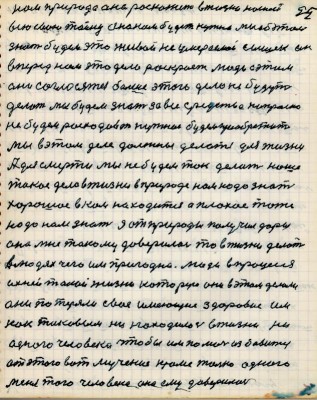 нам природа она раскажит втишко нашей
вью свою тайну она нам будет нужна мы об этом
знать будем это живой не умераемый
вперед нам это дело раскроет. люди сэтим
они согласутся больше этого дела не будут
делать мы будем знать за все средства напрасно
не будем росходовать нужное будем приобретать
мы в этом деле должны делать для жизни
А для смерти мы не будем так делать наше
такое дело в жизни в природе нам надо знать
хорошое в ком находится а плохое тоже
надо нам знать. я от природы получил дары
она мне такому доверилась то в жизни делать
в людях чего им пригодна. люди в процессе
ихней такой жизни которую они в этом делали
они потеряли свое имеющие здоровие им
как таковым ни находилось в жизни ни
одного человека чтобы им помог избавится
от этого вот мучение кроме только одного
меня того человека она ему доверилась